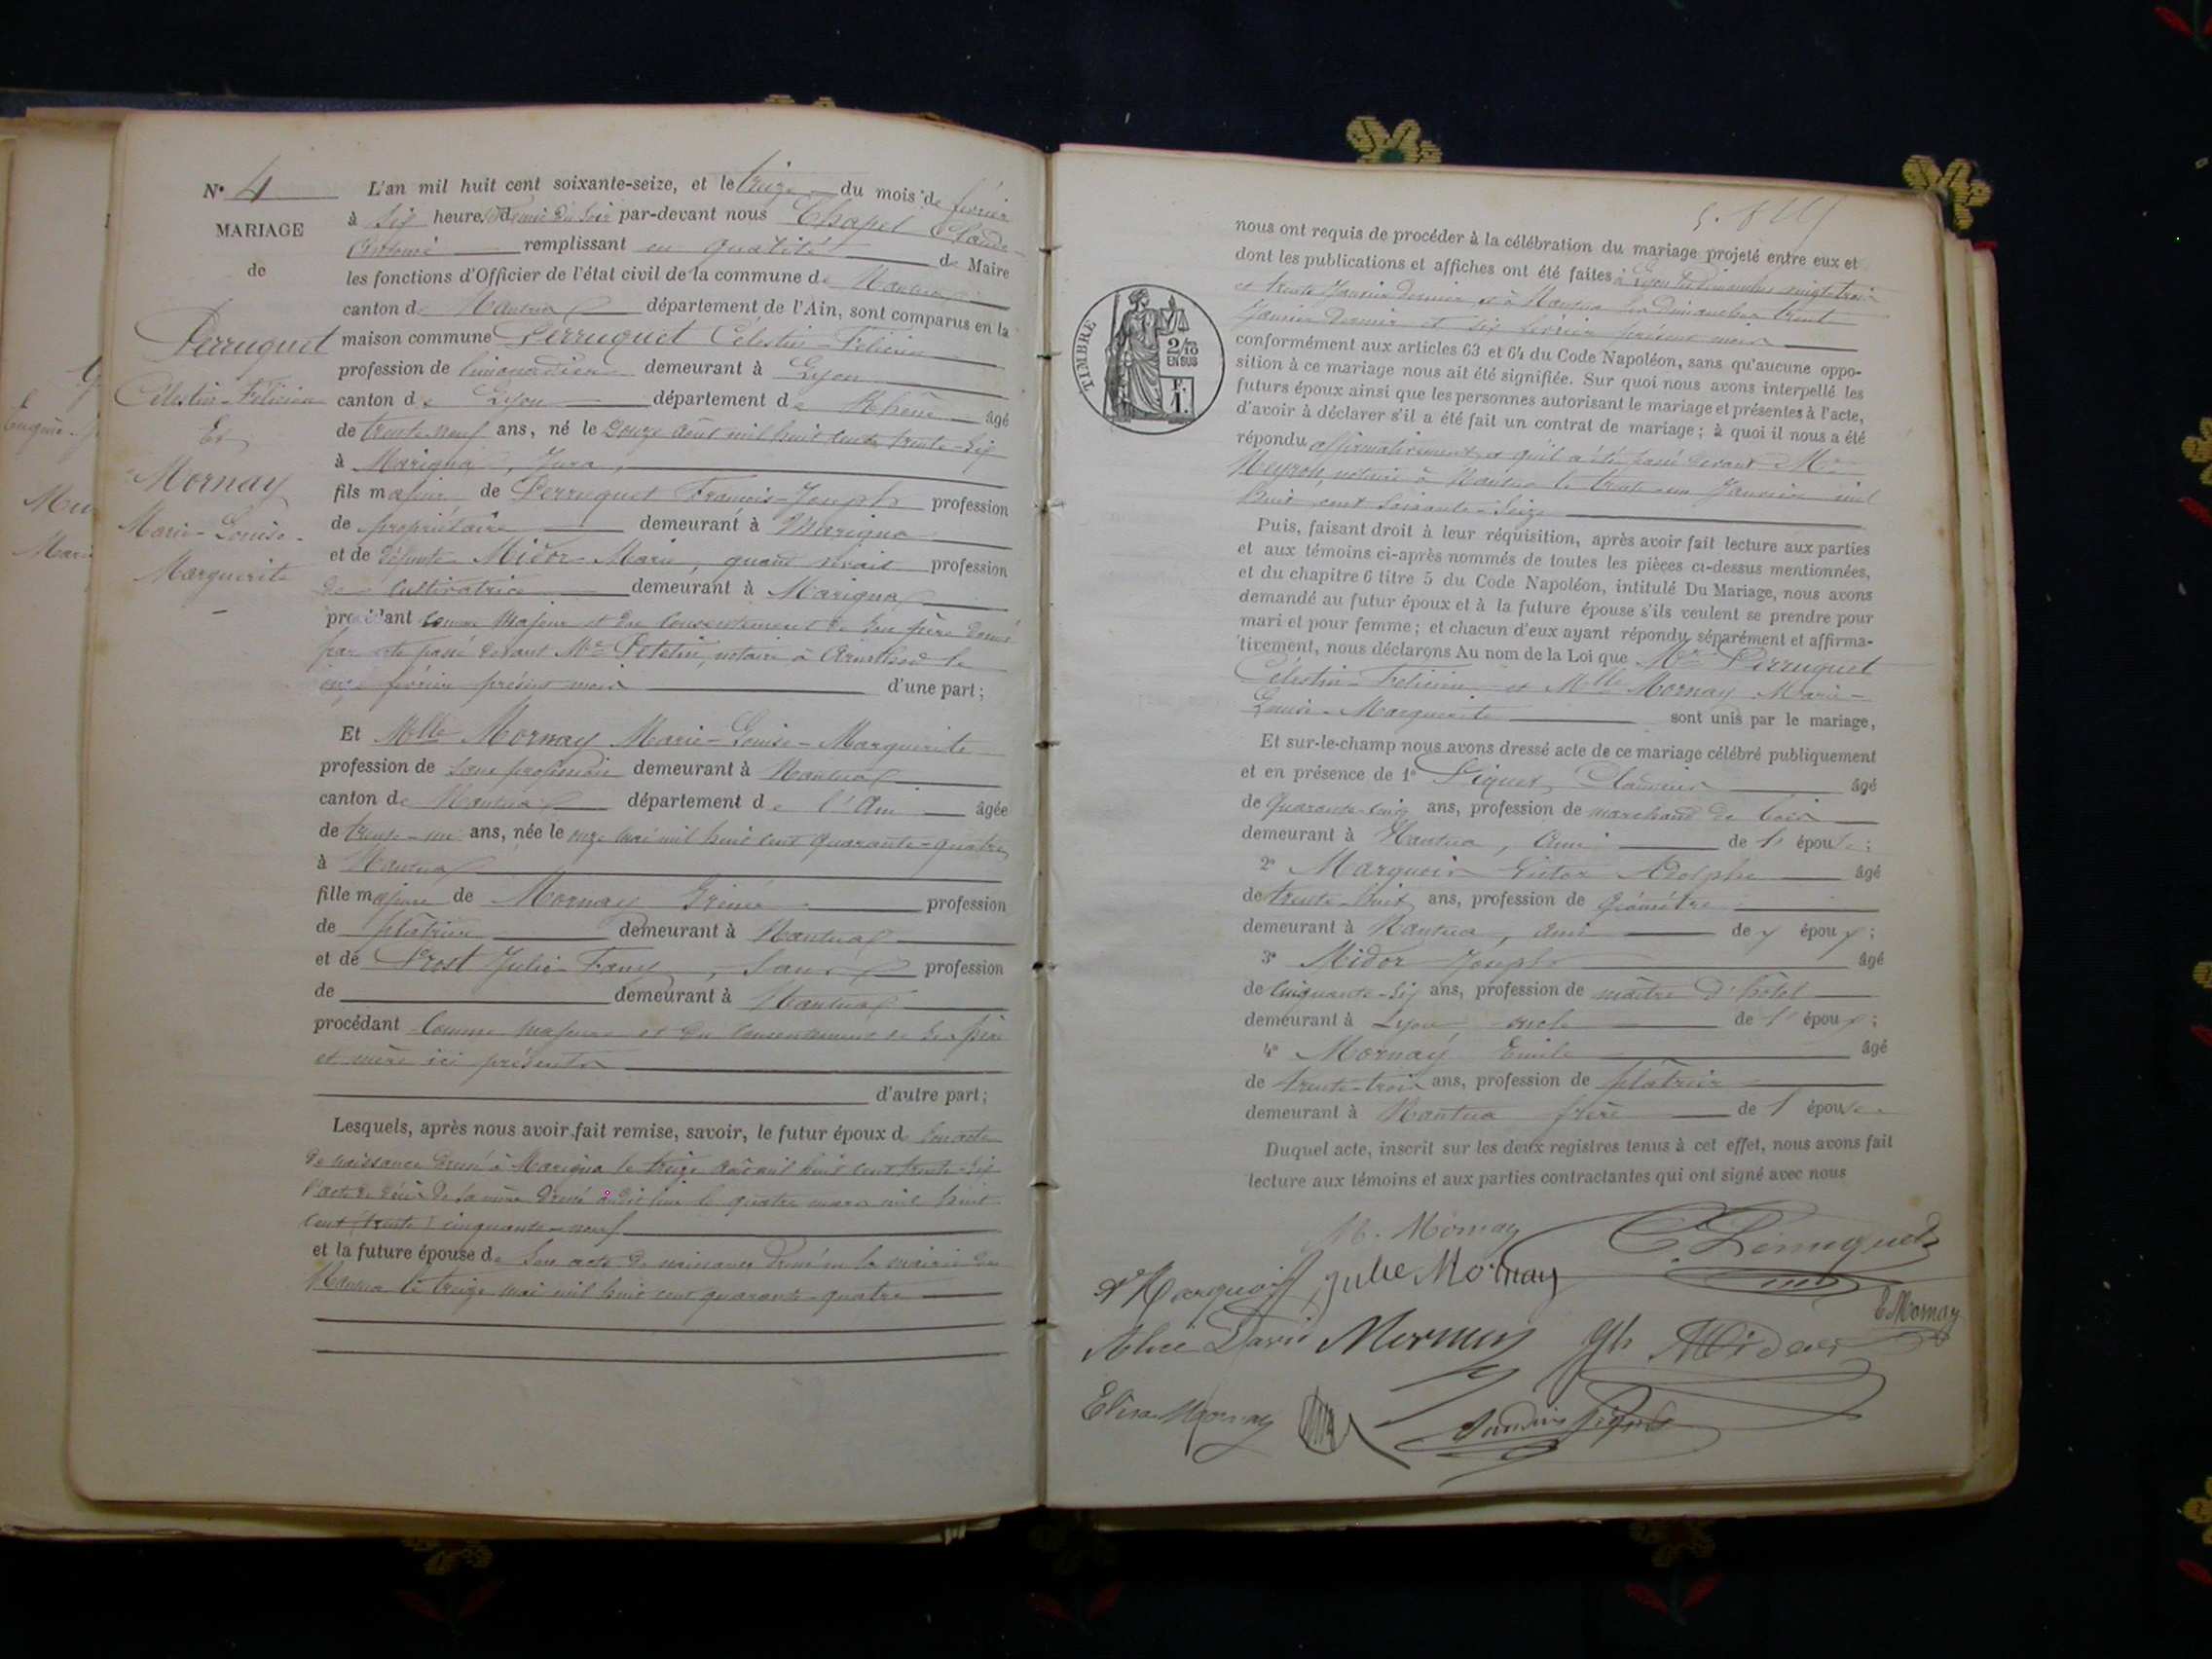 N° 4
MARIAGE
de
Perruquet
Célestin-Félicien
Et
Mornay
Marie-Louise-
Marguerite
L'an mil huit cent soixante-seize, et le treize du mois de février
à six heures et demie du soir par-devant nous Chapel Claude
Antoine remplissant en qualité de Maire
les fonctions d'Officier de l'état civil de la commune de Nantua
canton de Nantua département de l'Ain, sont comparus en la
maison commune Perruquet Célestin-Félicien
profession de limonadier demeurant à Lyon
canton de Lyon département de Rhône âgé
de trente-neuf ans, né le douze août mil huit cent trente-six
à Marigna, Jura,
fils majeur de Perruquet François-Joseph profession
de propriétaire demeurant à Marigna
et de défunte Midor Marie, quand vivait profession
de cultivatrice demeurant à Marigna
procédant comme majeur et du consentement de son père donné
par acte passé devant Me Petetin, notaire à Arinthod le
onze février présent mois d'une part;
Et Melle Mornay Marie-Louise-Marguerite
profession de sans profession demeurant à Nantua
canton de Nantua département de l'Ain âgée
de trente-un ans, née le onze mai mil huit cent quarante-quatre
à Nantua
fille majeure de Mornay Irénée profession
de plâtrier demeurant à Nantua
et de Prost Julie Fany, sans profession
de demeurant à Nantua
procédant comme majeure et du consentement de ses père
et mère ici présents
d'autre part;
Lesquels, après nous avoir fait remise, savoir, le futur époux de son acte
de naissance dressé à Marigna le treize août mil huit cent trente-six
l'acte de décès de sa mère dressé audit lieu le quatre mars mil huit
cent (trente) cinquante-neuf
et la future épouse de son acte de naissance dressé en la mairie de
Nantua le treize mai mil huit cent quarante-quatre
nous ont requis de procéder à la célébration du mariage projeté entre eux et
dont les publications et affiches ont été faites à Lyon les dimanches vingt-trois
et trente Janvier dernier, et à Nantua les dimanches trente
Janvier dernier et six février présent mois
conformément aux articles 63 et 64 du Code Napoléon, sans qu'aucune oppo-
sition à ce mariage nous ait été signifiée. Sur quoi nous avons interpellé les
futurs époux ainsi que les personnes autorisant le mariage et présentes à l'acte,
d'avoir à déclarer s'il a été fait un contrat de mariage; à quoi il nous a été
répondu affirmativement et qu'il a été passé devant Me
Neyron, notaire à Nantua le trente-un Janvier mil
huit cent soixante-seize
Puis, faisant droit à leur réquisition, après avoir fait lecture aux parties
et aux témoins ci-après nommés de toutes les pièces ci-dessus mentionnées,
et du chapitre 6 titre 5 du Code Napoléon, intitulé Du Mariage, nous avons
demandé au futur époux et à la future épouse s'ils veulent se prendre pour
mari et pour femme; et chacun d'eux ayant répondu séparément et affirma-
tivement, nous déclarons Au nom de la Loi que Mr Perruquet
Célestin-Félicien et Melle Mornay Marie-
Louise-Marguerite sont unis par le mariage,
Et sur-le-champ nous avons dressé acte de ce mariage célébré publiquement
et en présence de 1° Piquet, Claudius âgé
de quarante-cinq ans, profession de marchand de bois
demeurant à Nantua, ami de l'épouse;
2° Marquois Victor Adolphe âgé
de trente-huit ans, profession de géomètre
demeurant à Nantua, ami de époux;
3° Midor Joseph âgé
de cinquante-six ans, profession de maître d'hôtel
demeurant à Lyon oncle de l'époux;
4° Mornay Emile âgé
de trente-trois ans, profession de plâtrier
demeurant à Nantua frère de l'épouse
Duquel acte, inscrit sur les deux registres tenus à cet effet, nous avons fait
lecture aux témoins et aux parties contractantes qui ont signé avec nous
M. Mornay C. Perruquet
Marquois Julie Mornay
E. Mornay
Alice David Mornay Jh Midor
Elisa Mornay Claudius Piquet
TIMBRE
2/10
EN SUS
F.
1.